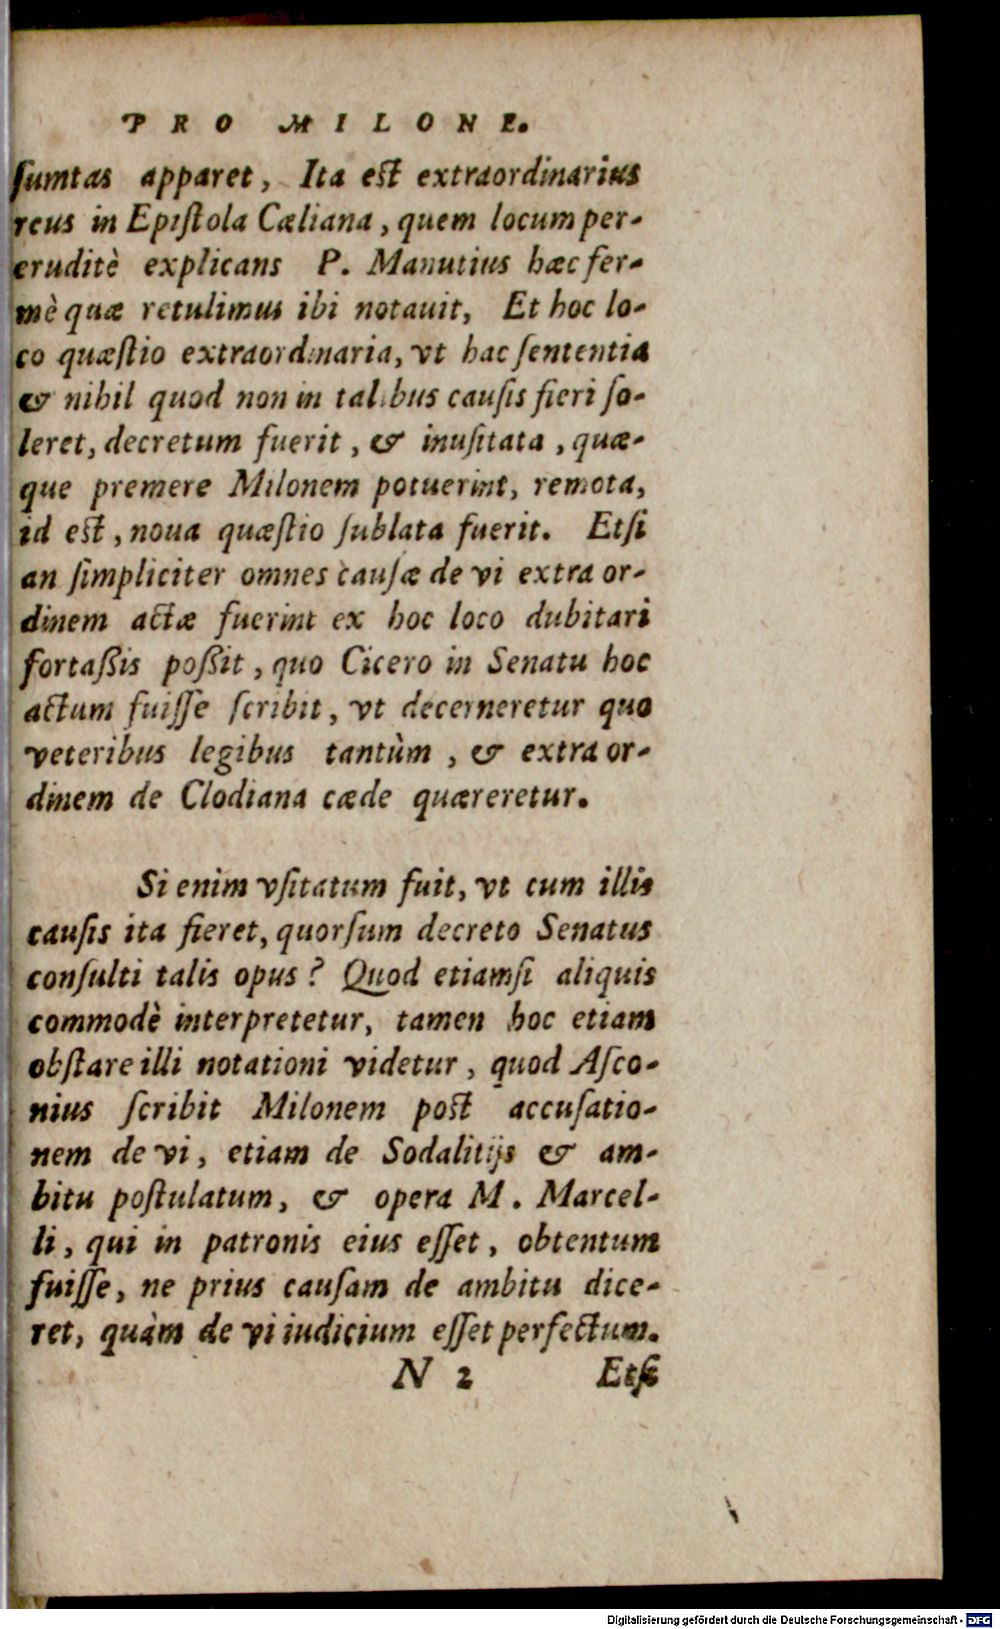 PRO MILONE.
ſumtas apparet, Ita eſt extraordinarius
reus in Epiſtola Cæliana, quem locum per-
eruditè explicans P. Manutius hæc fer-
mè quæ retulimus ibi notauit, Et hoc lo-
co quæſtio extraordinaria, vt hac ſententia
& nihil quod non in talibus cauſis fieri ſo-
leret, decretum fuerit, & inuſitata, quæ-
que premere Milonem potuerint, remota,
id eſt, noua quæſtio ſublata fuerit. Etſi
an ſimpliciter omnes cauſæ de vi extra or-
dinem actæ fuerint ex hoc loco dubitari
fortaßis poßit, quo Cicero in Senatu hoc
actum fuiſſe ſcribit, vt decerneretur quo
veteribus legibus tantùm, & extra or-
dinem de Clodiana cæde quæreretur.
Si enim vſitatum fuit, vt cum illis
cauſis ita fieret, quorſum decreto Senatus
conſulti talis opus? Quod etiamſi aliquis
commodè interpretetur, tamen hoc etiam
obſtare illi notationi videtur, quod Aſco-
nius ſcribit Milonem poſt accuſatio-
nem de vi, etiam de Sodalitijs & am-
bitu poſtulatum, & opera M. Marcel-
li, qui in patronis eius eſſet, obtentum
fuiſſe, ne prius cauſam de ambitu dice-
ret, quàm de vi iudicium eſſet perfectum.
N 2 Etſi
Digitalisierung gefördert durch die Deutsche Forschungsgemeinschaft - DFG